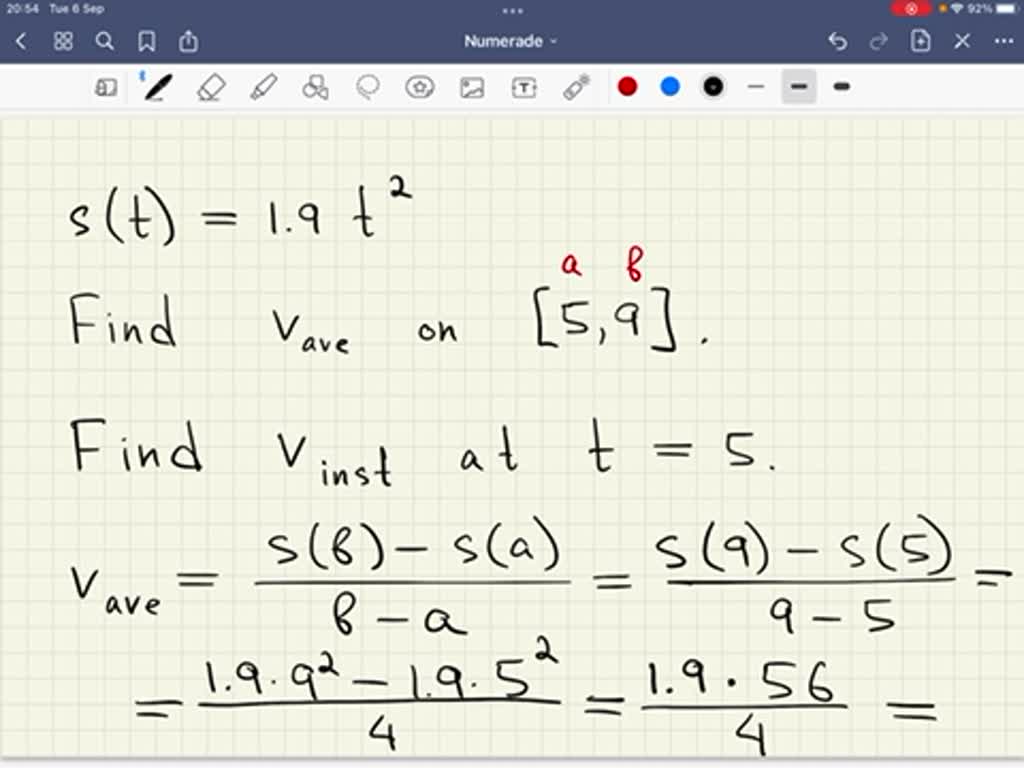 20:54 Tue 6 Sep 92%
Numerade
s(t) = 1.9 t²
a b
Find v_ave on [5,9].
Find v_inst at t = 5.
v_ave = (s(b) - s(a)) / (b - a) = (s(9) - s(5)) / (9 - 5) =
= (1.9·9² - 1.9·5²) / 4 = (1.9·56) / 4 =